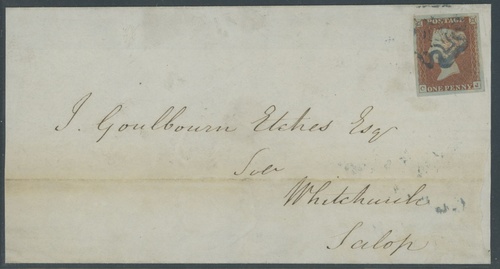 POSTAGE
ONE PENNY
J. Goulbourn Etches Esqr
Solr
Whitchurch
Salop